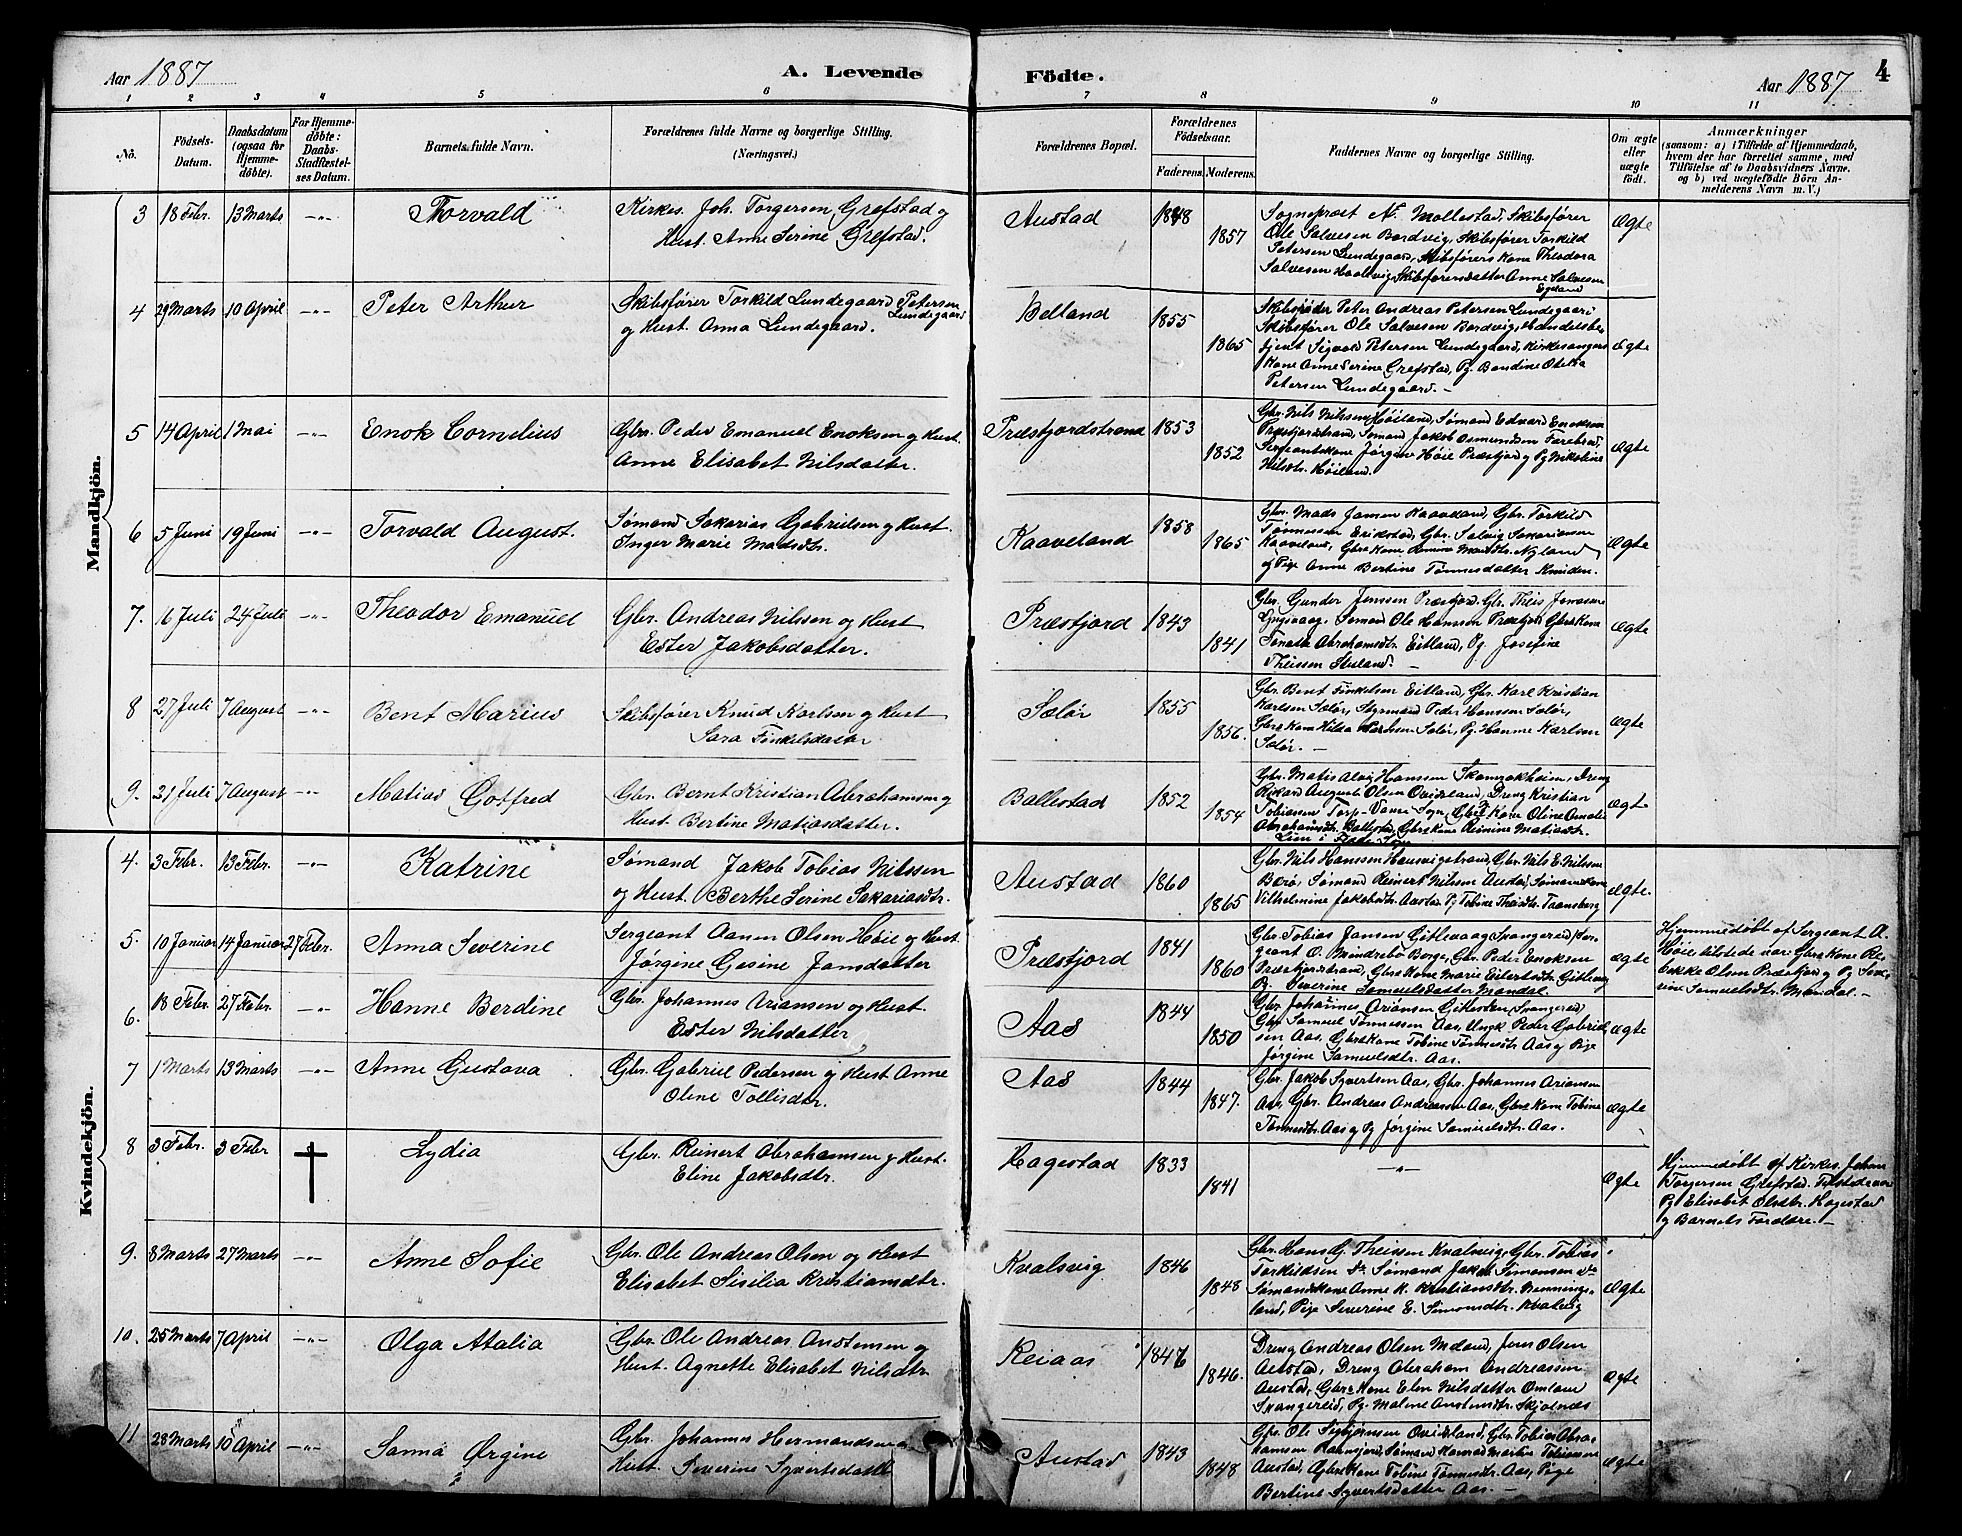 Aar 1887
A. Levende
Födte.
Aar 1887
4
1 2 3 4 5 6 7 8 9 10 11
No.
Födsels-
Datum.
Daabsdatum
(ogsaa for
Hjemme-
döbte).
For Hjemme-
döbte:
Daabs-
Stadfæstel-
ses Datum.
Barnets fulde Navn.
Forældrenes fulde Navne og borgerlige Stilling.
(Næringsvei.)
Forældrenes Bopæl.
Forældrenes
Födselsaar.
Faderens. Moderens.
Faddernes Navne og borgerlige Stilling.
Om ægte
eller
uægte
födt.
Anmærkninger
(saasom: a) i Tilfælde af Hjemmedaab,
hvem der har forrettet samme, med
Tilföielse af to Daabsvidners Navne.
og b) ved uægtefödte Börn An-
melderens Navn m. V.)
Mandkjön.
3 18 Febr. 13 Marts -"- Thorvald
Kirkes. Joh. Torgersen Grefstad og
Hust. Anne Serine Grefstad.
Austad 1848 1857
Sogneprest N. Mollestad, Skibsfører
Ole Salvesen Bordvig, Skibsfører Torkild
Petersen Lundegaard, Skibsførers Kone Theodora
Salvesen Skibsførersdatter Anne Salvesen
Egeland
Ægte
4 29 Marts 10 April -"- Peter Arthur
Skibsfører Torkild Lundegaard Petersen
Lundegaard
og Hust. Anna Lundegaard.
Belland 1855 1865
Skibsreder Peter Andreas Petersen Lundegaard
Skibsfører Ole Salvesen Bordvig, Handelsbe-
tjent Sigvald Petersen Lundegaard, Kirkesangers
Kone Anne Serine Grefstad, Pg. Bendine Otelia
Petersen Lundegaard. -
Ægte
5 14 April 1 Mai -"- Enok Cornelius
Gbr. Peder Emanuel Enoksen og Hust.
Anne Elisabet Nilsdatter.
Præstfjordstrand 1853 1852
Gbr. Nils Nilssen Høiland, Sømand Edvard Enoksen
Præstfjordstrand, Sømand Jakob Osmundsen Farebrod,
Sergeantskone Jørgine Høie Præstfjord og Pg Nikoline
Nilsdtr. Høiland.
Ægte
6 5 Juni 19 Juni -"- Torvald August.
Sømand Sakarias Gabrielsen og Hust.
Inger Marie Madsdtr.
Kaaveland 1858 1865
Gbr. Mads Jansen Kaaveland, Gbr. Torkild
Tønnessen Erikstad, Gbr. Salvig Sakariassen
Kaaveland, Gbrs Kone Madsdtr. Nyland
og Pige Anne Bertine Tønnesdatter Knuden.
Ægte
7. 6 Juli 24 Juli -"- Theodor Emanuel
Gbr. Andreas Nilssen og Hust
Ester Jakobsdatter.
Præstfjord 1843 1841
Gbr. Gunder Jenssen Præstfjord, Gbr. Theis Jonassen
Sømand Ole Hanssen Præstfjord Gbrs Kone
Tonetta Abrahamsdtr. Eitland, Pg. Josefine
Theissen Stuland. -
Ægte
8 27 Juli 7 August -"- Bent Marius
Skibsfører Knud Karlsen og Hust
Sara Tinkelsdatter
Salør 1855 1856.
Gbr. Bent Tinkelsen Eitland, Gbr. Karl Kristian
Karlsen Salør, Styrmand Peder Hanssen Salør,
Gbrs Kone Hilda Karlssen Salør, Pg. Hanne Karlsen
Salør. -
Ægte
9. 21 Juli 7 August -"- Matias Gotfred
Gbr. Bernt Kristian Abrahamsen og
Hust. Bertine Matiasdatter.
Ballestad 1852 1854
Gbr. Matis Alvig Hanssen Skamrokheim, Dreng
Rikard August Olsen Ovidsland, Dreng Kristian
Tobiassen Torp Vanse Sogn, Gbrs Kone Oline Amalie
Abrahamsdtr. Ballestad, Gbrs Kone Reinine Matiasdtr.
Ægte
Kvindekjön.
4. 3 Febr. 13 Febr. -"- Katrine
Sømand Jakob Tobias Nilssen
og Hust. Berthe Serine Sakariasdtr.
Austad 1860 1865
Gbr. Nils Hanssen Haavigstrand, Gbr. Nils E. Nilssen
Berø, Sømand Reinert Nilssen Austad, Sømands Kone
Vilhelmine Jakobsdtr. Austad Pg Tobine Theisdtr. Taansberg
Ægte.
5. 10 Januar 14 Januar 27 Febr. Anna Severine
Sergeant Aanen Olsen Høie og Hust
Jørgine Gesine Jansdatter
Præstfjord 1841 1860
Gbr. Tobias Jansen Gitlevaag Spangereid, Ser-
geant O. Mindrebø Berge, Gbr. Peder Enoksen
Præstfjordstrand, Gbrs Kone Marie Eilertsdtr. Gitlevaag
Pg. Severine Samuelsdatter Mandal.
Ægte
Hjemmedøbt af Sergeant A.
Høie tilstede var Gbrs Kone Re-
bekke Olsen Præstfjord og Pg Seve-
rine Samuelsdtr. Mandal. -
6. 18 Febr. 27 Febr. -"- Hanne Berdine
Gbr. Johannes Ariansen og Hust.
Ester Nilsdatter
Aas 1844 1850
Gbr. Johannes Ariansen Gitlesten (Spangereid)
Gbr. Samuel Tønnessen Aas, Ungk. Peder Gabriel-
sen Aas, Gbrs Kone Tobine Tønnesdtr. Aas og Pige
Jørgine Samuelsdtr. Aas.
Ægte
7 1 Marts 13 Marts -"- Anne Gustava
Gbr. Gabriel Pedersen og Hust Anne
Oline Tollisdtr.
Aas 1844 1847.
Gbr. Jakob Syvertsen Aas, Gbr. Johannes Ariansen
Aas, Gbr. Andreas Andreassen Aas, Gbrs Kone Tobine
Tønnesdtr. Aas og Pg Jørgine Samuelsdtr. Aas.
Ægte
8 3 Febr. 3 Febr Lydia
Gbr. Reinert Abrahamsen og Hust.
Eline Jakobsdtr.
Hagestad 1833 1841
-"-
Ægte
Hjemmedøbt af Kirkes. Johan
Torgersen Grefstad. Tilstede var
Pg Elisabet Olsdtr. Hagestad
og Barnets Forældre. -
9. 8 Marts 27 Marts -"- Anne Sofie
Gbr. Ole Andreas Olsen og Hust
Elisabet Sisilia Kristiansdtr.
Kvalsvig 1846 1848
Gbr. Hans G. Theissen Kvalsvig, Gbr. Tobias
Torkildsen Do. Sømand Jakob Simonsen Do
Sømandskone Anne K. Kristiansdtr. Henningsland,
Pige Severine E. Simonsdtr. Kvalsvig
Ægte
10. 25 Marts 7 April -"- Olga Atalia
Gbr. Ole Andreas Austensen og
Hust. Agnette Elisabet Nilsdtr.
Reiaas 1847 1846.
Dreng Andreas Olsen Meland, Jens Olsen
Austad, Dreng Abraham Andreassen
Austad, Gbrs Kone Elen Nilsdatter Omland
Spangereid, Pg. Malene Austensdtr. Skjolnes
Ægte
11 28 Marts 10 April -"- Sanna Ørgine
Gbr. Johannes Hermandsen og
Hust. Severine Syvertsdatter
Austad 1843 1848
Gbr. Ole Sigbjørnsen Ovidsland, Gbr Tobias Abra-
hamsen Ramsfjord, Sømand Konrad Martin Tobiassen
Austad, Gbrs Kone Tobine Tønnesdtr. Aas, Pige
Bertine Syvertsdatter Aas. -
Ægte